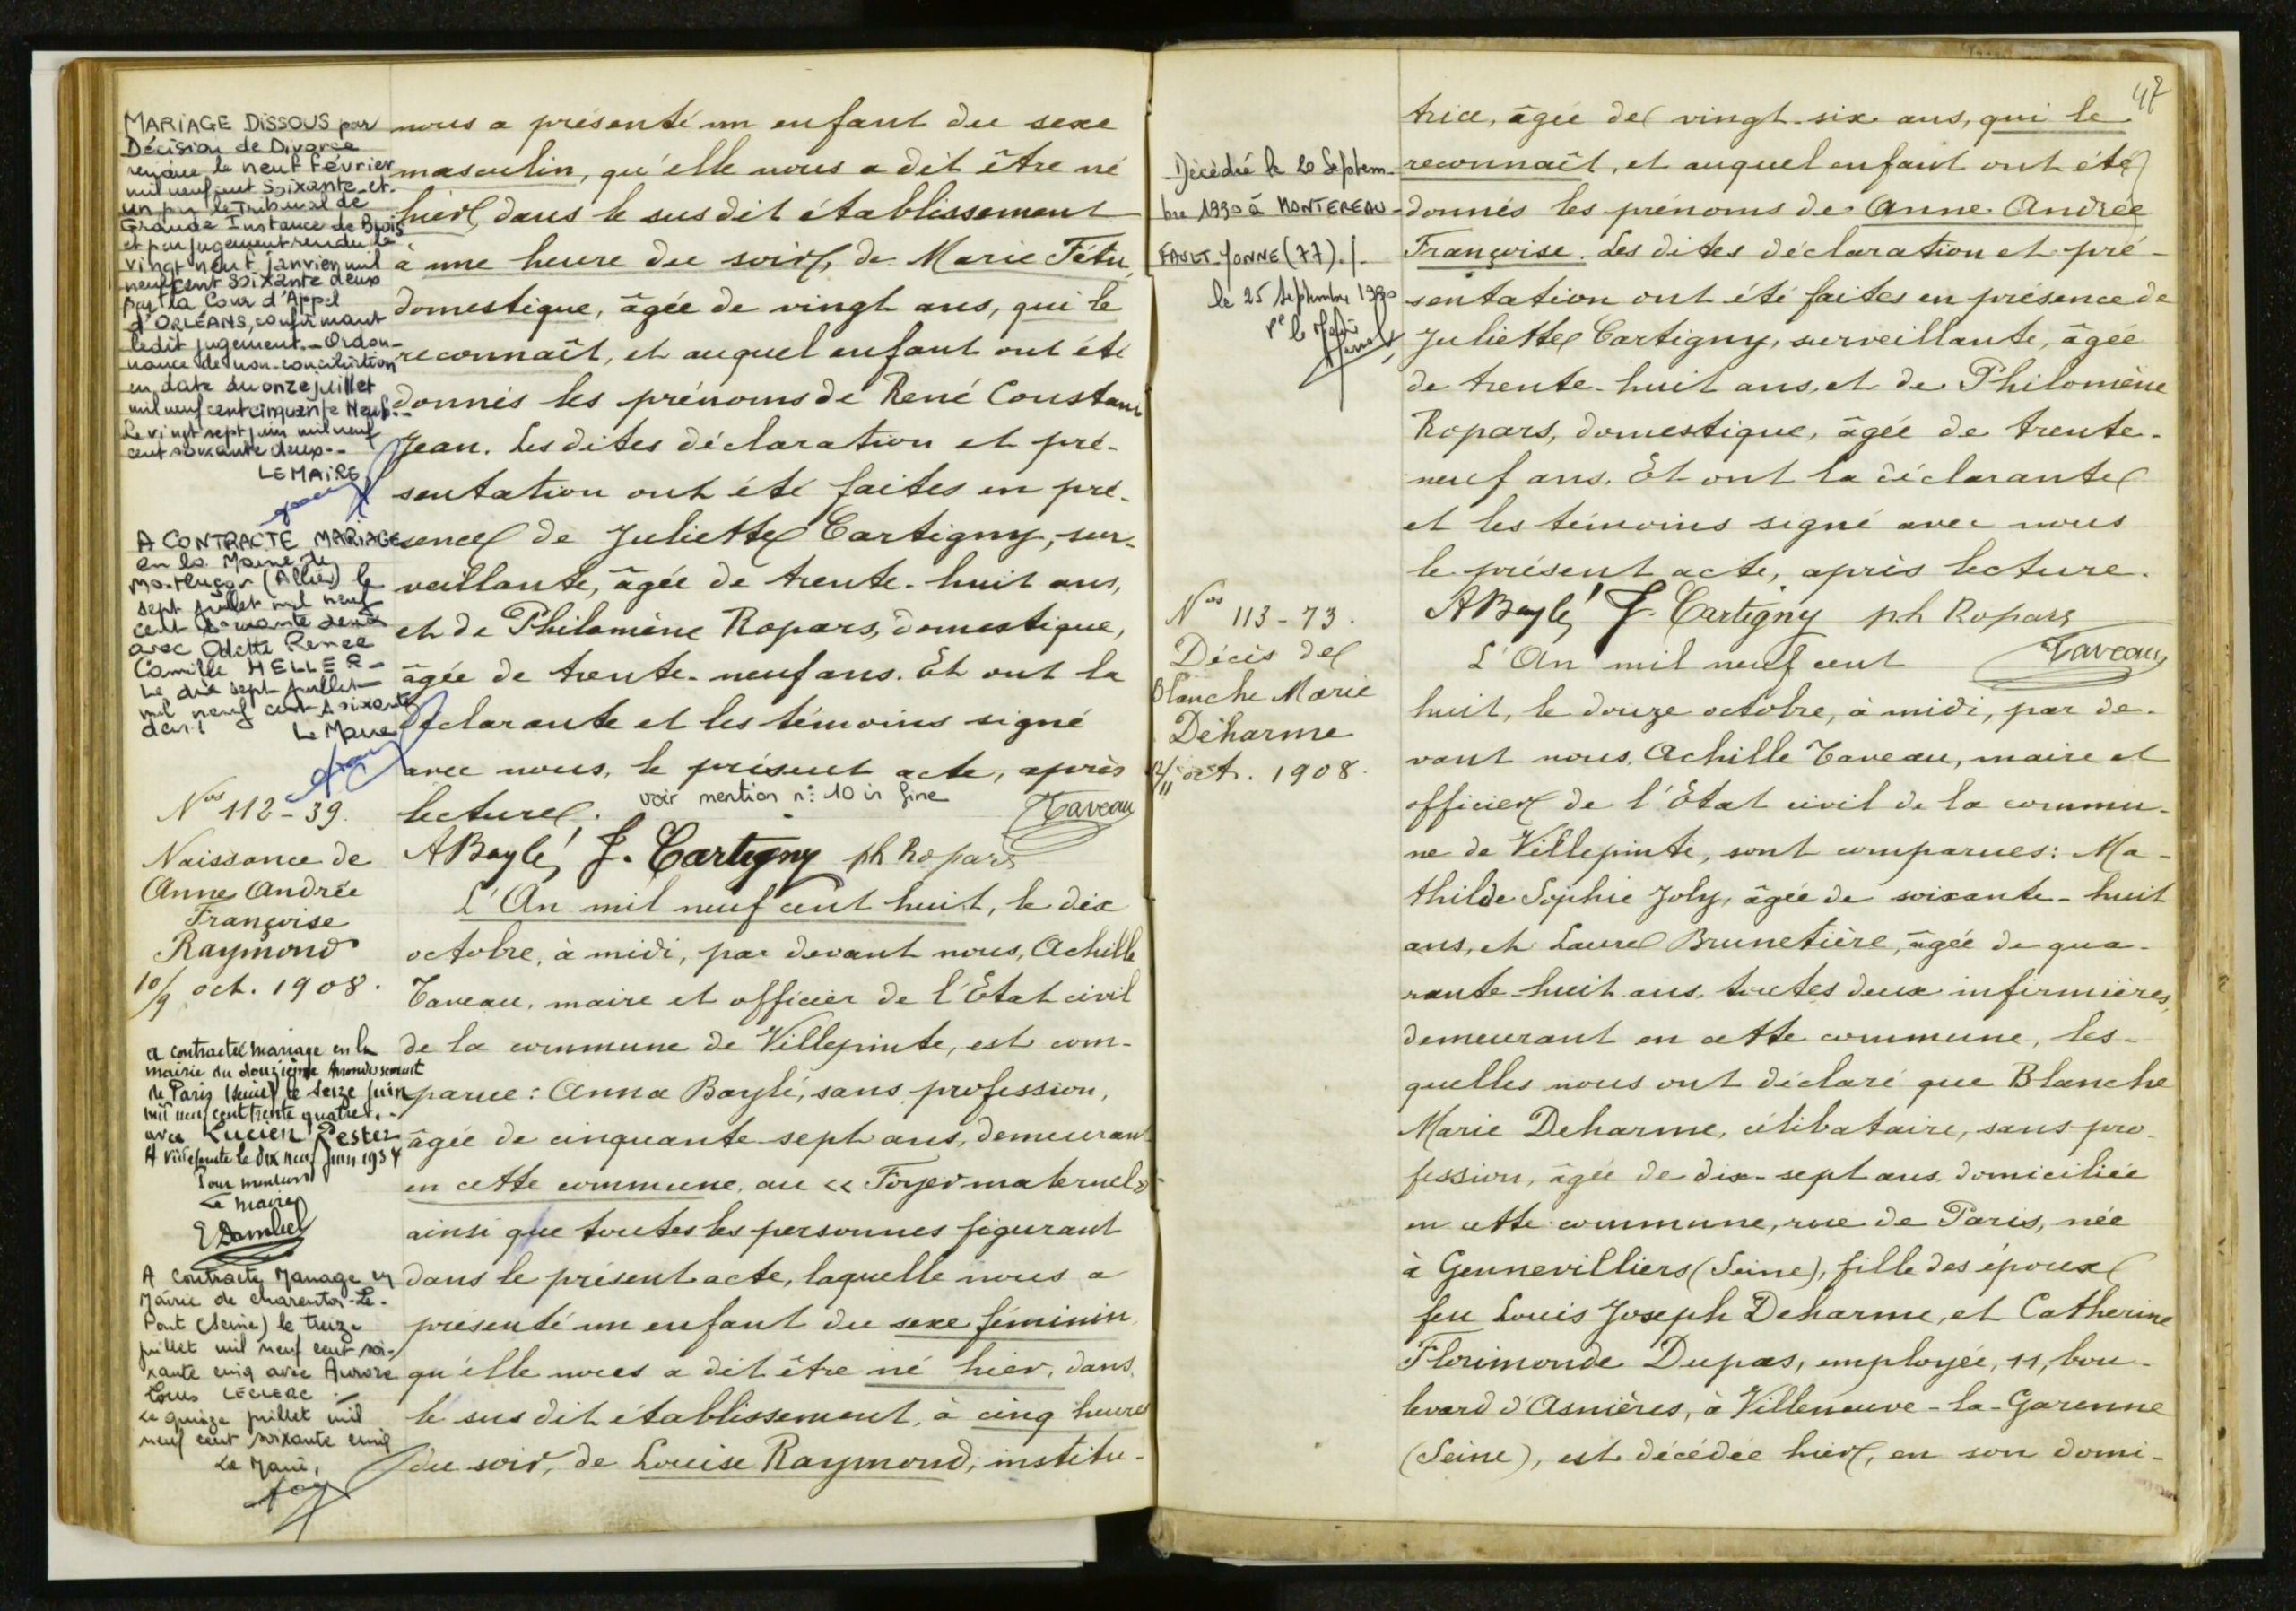 MARIAGE DISSOUS par
Décision de Divorce
rendue le neuf Février
mil neuf cent soixante et
un par le Tribunal de
Grande Instance de Blois
et par jugement rendu le
vingt neuf janvier mil
neuf cent soixante deux
par la Cour d'Appel
d'ORLÉANS, confirmant
ledit jugement. - Ordon-
nance de non-conciliation
en date du onze juillet
mil neuf cent cinquante Neuf. -
Le vingt sept juin mil neuf
cent soixante deux. -
LE MAIRE,
A CONTRACTÉ MARIAGE
en la Mairie de
Montluçon (Allier) le
sept juillet mil neuf
cent soixante deux
avec Odette Renée
Camille HELLER -
Le dix sept juillet
mil neuf cent soixante
deux
Le Maire
Nos 112 - 39.
Naissance de
Anne Andrée
Françoise
Raymond
10/9 oct. 1908.
a contracté mariage en la
mairie du douzième Arrondissement
de Paris (Seine) le seize juin
mil neuf cent trente quatre. -
avec Lucien Pester
A Villepinte le dix neuf juin 1934
Pour mention
Le maire
A contracté mariage en
Mairie de Charenton-Le-
Pont (Seine) le treize
juillet mil neuf cent soi-
xante cinq avec Aurore
Louis LECLERC ./.
Le quinze juillet mil
neuf cent soixante cinq
Le Maire,
nous a présenté un enfant du sexe
masculin, qu'elle nous a dit être né
hier, dans le susdit établissement
à une heure du soir, de Marie Fétu,
domestique, âgée de vingt ans, qui le
reconnaît, et auquel enfant ont été
donnés les prénoms de René Constant
Jean. Les dites déclaration et pré-
sentation ont été faites en pré-
sence de Juliette Cartigny, sur-
veillante, âgée de trente-huit ans,
et de Philomène Ropars, domestique,
âgée de trente-neuf ans. Et ont la
déclarante et les témoins signé
avec nous, le présent acte, après
lecture. voir mention n°: 10 in fine
Taveau
A Baylé, J. Cartigny ph Ropars
L'An mil neuf cent huit, le dix
octobre, à midi, par devant nous, Achille
Taveau, maire et officier de l'État civil
de la commune de Villepinte, est com-
parue: Anna Baylé, sans profession,
âgée de cinquante-sept ans, demeurant
en cette commune, au « Foyer maternel »
ainsi que toutes les personnes figurant
dans le présent acte, laquelle nous a
présenté un enfant du sexe féminin,
qu'elle nous a dit être né hier, dans
le susdit établissement, à cinq heures
du soir, de Louise Raymond, institu-
47
Décédée le 20 Septem-
bre 1990 à MONTEREAU-
FAULT-YONNE (77)./.
le 25 Septembre 1990
Nos 113 - 73.
Décès de
Blanche Marie
Deharme
12/11 oct. 1908.
trice, âgée de vingt-six ans, qui le
reconnaît, et auquel enfant ont été
donnés les prénoms de Anne Andrée
Françoise. Les dites déclaration et pré-
sentation ont été faites en présence de
Juliette Cartigny, surveillante, âgée
de trente-huit ans, et de Philomène
Ropars, domestique, âgée de trente-
neuf ans. Et ont la déclarante
et les témoins signé avec nous
le présent acte, après lecture.
A Baylé, J. Cartigny ph Ropars
Taveau
L'An mil neuf cent
huit, le douze octobre, à midi, par de-
vant nous, Achille Taveau, maire et
officier de l'État civil de la commu-
ne de Villepinte, sont comparues: Ma-
thilde Sophie Joly, âgée de soixante-huit
ans, et Laure Brunetière, âgée de qua-
rante-huit ans, toutes deux infirmières,
demeurant en cette commune, les-
quelles nous ont déclaré que Blanche
Marie Deharme, célibataire, sans pro-
fession, âgée de dix-sept ans, domiciliée
en cette commune, rue de Paris, née
à Gennevilliers (Seine), fille des époux
feu Louis Joseph Deharme, et Catherine
Florimonde Dupas, employée, 11, bou-
levard d'Asnières, à Villeneuve-la-Garenne
(Seine), est décédée hier, en son domi-